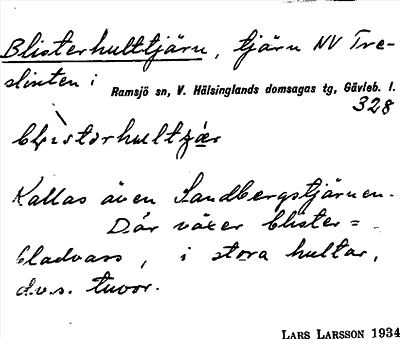 Blisterhulttjärn, tjärn NV Tre-
slinten i
Ramsjö sn, V. Hälsinglands domsagas tg, Gävleb. l.
328
Kallas även Sandbergstjärnen.
Där växer blister=
bladvass, i stora hultar,
d.v.s. tuvor.
LARS LARSSON 1934